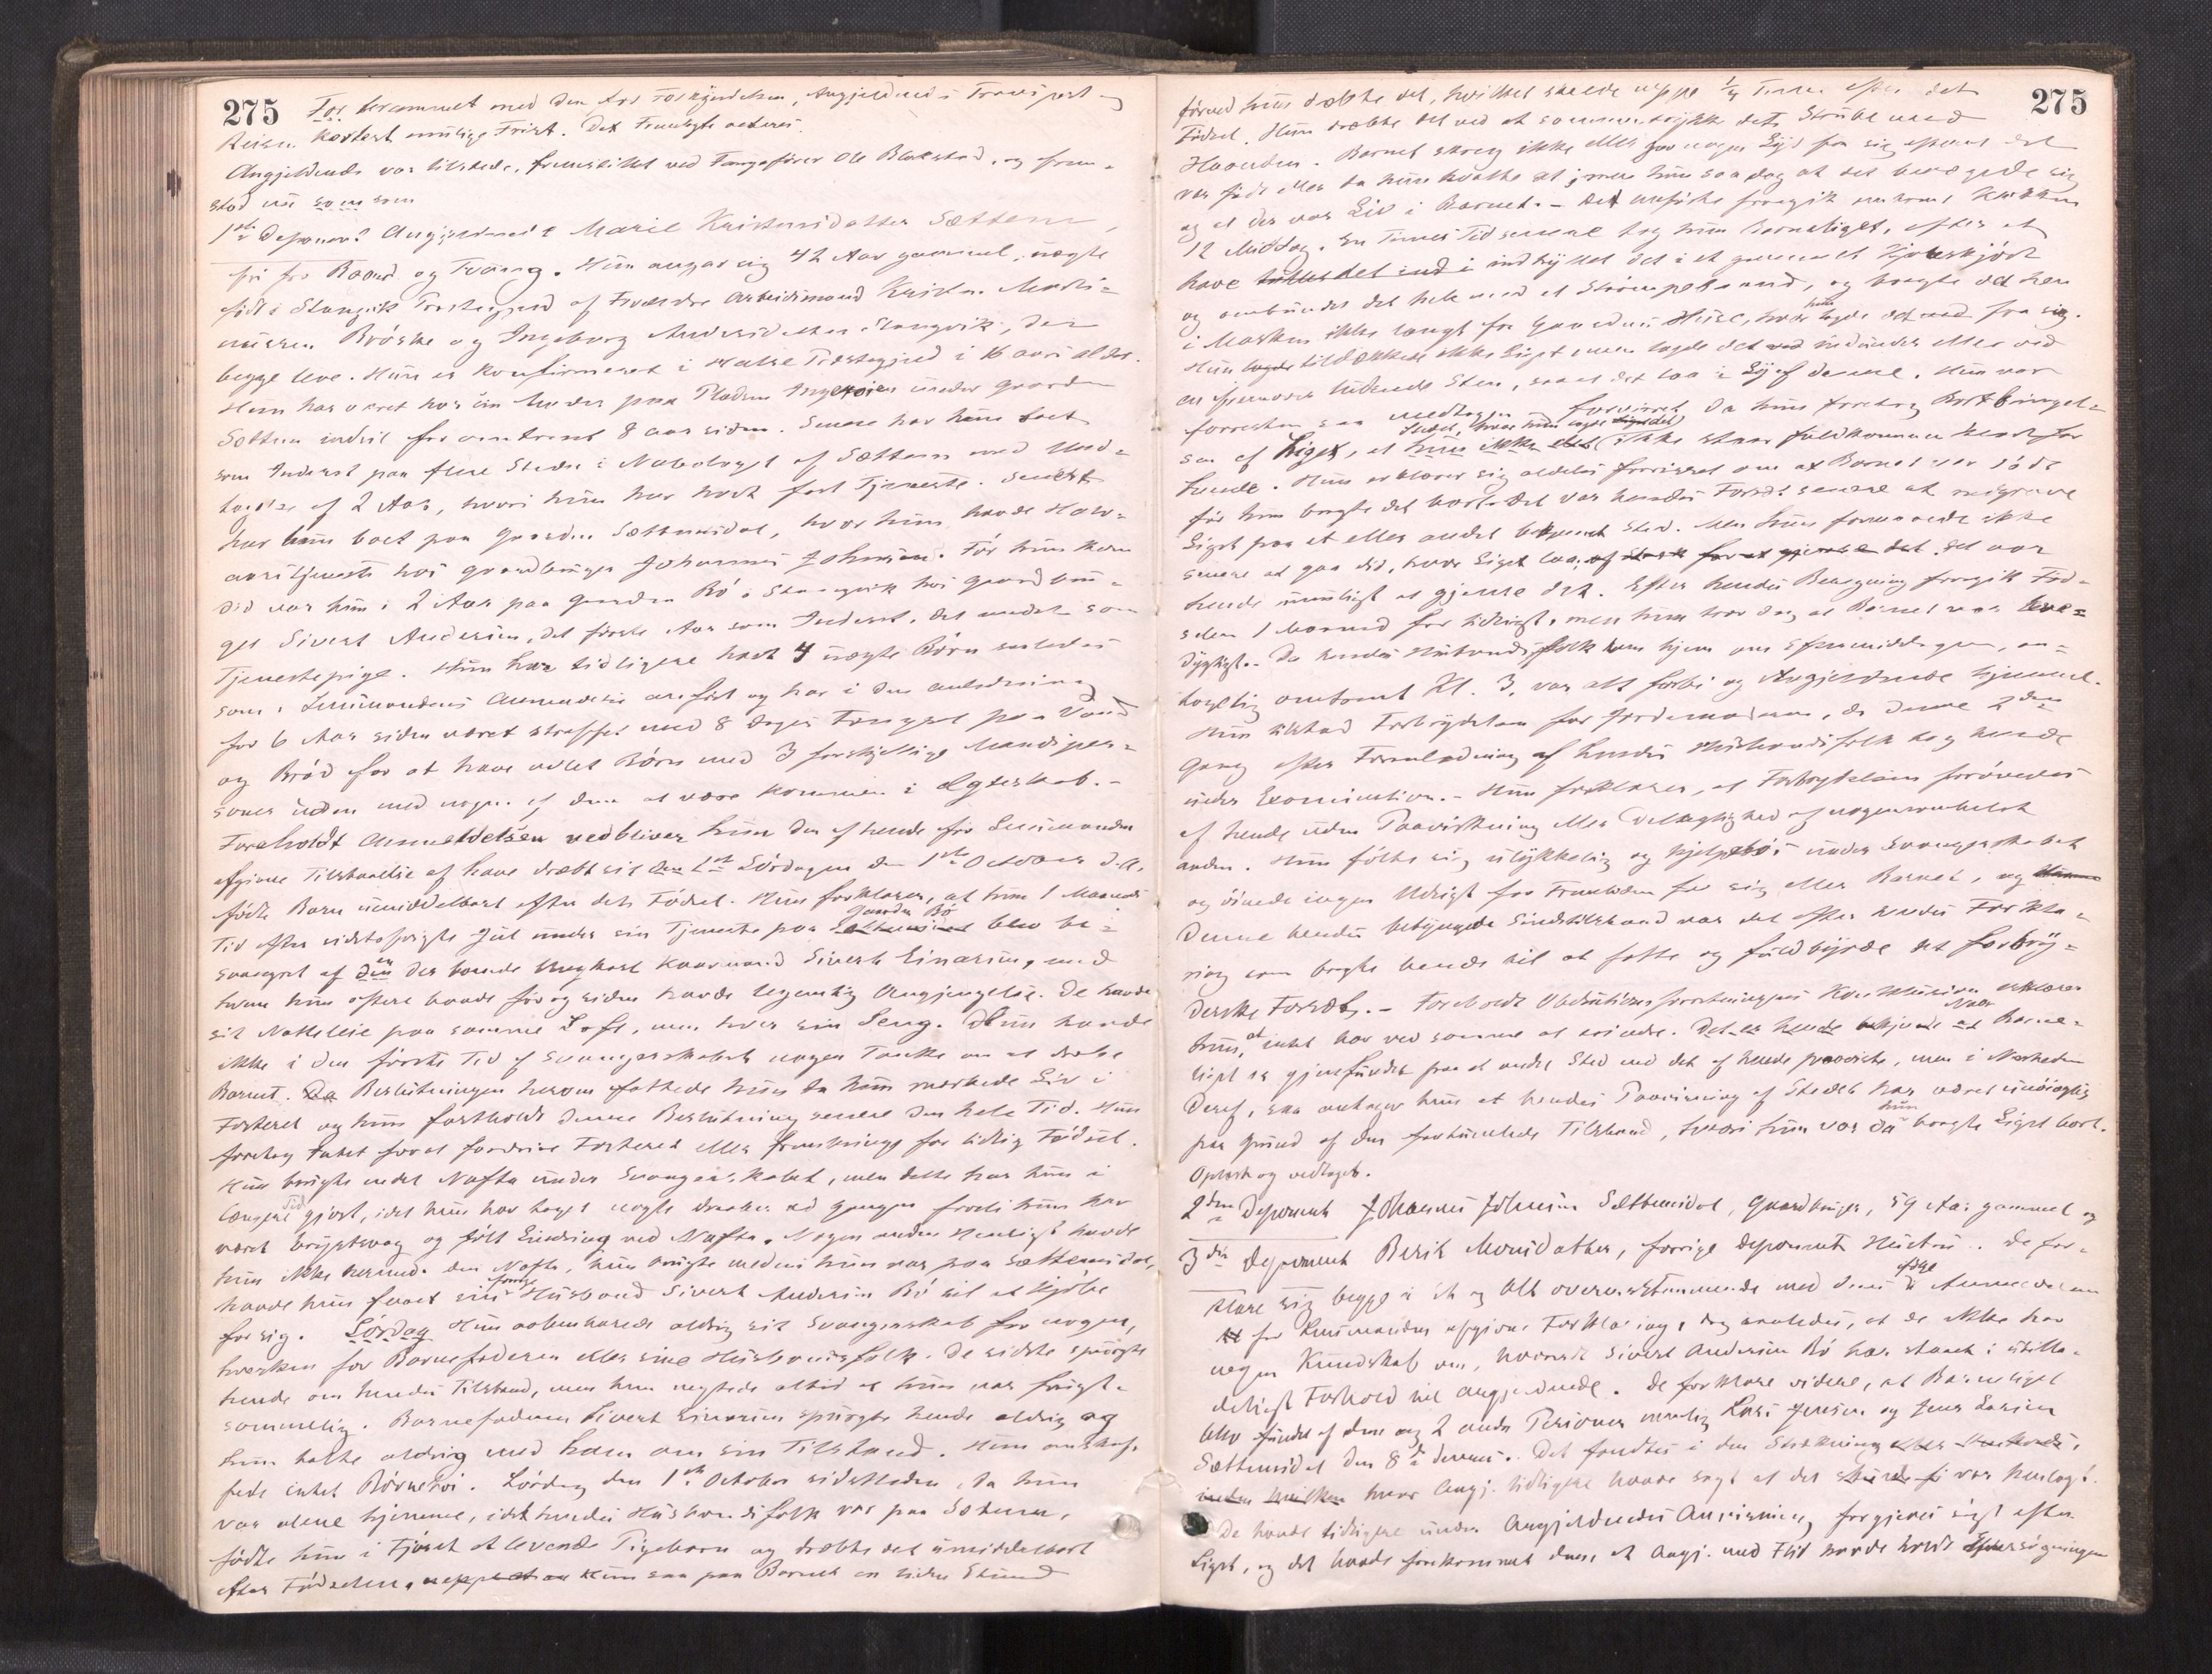 275
For berammet med den for Forkyndelsen, Angjeldendes Transport og
Reisen kortest mulige Frist. Det Fremlagte acteres.
Angjeldende var tilstede, fremstillet ved Fangefører Ole Blakstad, og frem-
stod nu som som
1ste Deponent Angjeldende Marit Kristensdatter Sættem,
fri for Baand og Tvang. Hun angav sig 42 Aar gammel, uægte
født i Stangvik Præstegjeld af Forældre Arbeidsmand Kristen Morti-
nussen Brøske og Ingeborg Andersdatter Stangvik, der
begge leve. Hun er konfirmeret i Halse Præstegjeld i 16 aars alder.
Hun har været hos sin Moder paa Pladsen Myrvoien under Gaarden
Sættem indtil for omtrent 8 aar siden. Senere har hun boet
som Inderst paa flere Steder i Nabolaget af Sættem med Und-
tagelse af 2 Aar, hvori hun har havt fast Tjeneste. Senest
har hun boet paa Gaarden Sættemsdal, hvor hun havde Halv-
aarstjeneste hos Gaardbruger Johannes Johnsen. Før hun kom
did var hun i 2 Aar paa Gaarden Bø i Stangvik hos Gaardbru-
ger Sivert Andersen, det første Aar som Inderst, det andet som
Tjenestepige. Hun har tidligere havt 4 uægte Børn saaledes
som i Lensmandens Anmeldelse anført og har i den anledning
for 6 Aar siden været straffet med 8 dages Fængsel paa Vand
og Brød for at have avlet Børn med 3 forskjellige Mandsper-
soner uden med nogen af dem at være kommen i Ægteskab.-
Foreholdt Anmeldelsen vedbliver hun den af hende for Lensmanden
afgivne Tilstaaelse af have dræbt sit den 1ste Lørdagen den 1ste October d.A.
fødte Barn umiddelbart efter dets Fødsel. Hun forklarer, at hun 1 Maaneds
Tid efter sidstafvigte Jul under sin Tjeneste paa Sættemsdal Gaarden Bø blev be-
svangret af den en der boende Ungkarl Kaarmand Sivert Einarsen, med
hvem hun oftere baade før og siden havde legemlig Omgjengelse. De havde
sit Natteleie paa samme Loft, men hver sin Seng. Hun havde
ikke i den første Tid af Svangerskabet nogen Tanke om at dræbe
Barnet. Da Beslutningen herom fattede hun da hun mærkede Liv i
Fosteret og hun fastholdt denne Beslutning senere den hele Tid. Hun
foretog Intet for at fordrive Fosteret eller fremskynde for tidlig Fødsel.
Hun brugte endel Nafta under Svangerskabet, men dette har hun i
længere Tid gjort, idet hun har taget nogle draaber ad gangen fordi hun har
været brystsvag og følt Lindring ved Nafta. Nogen anden Hensigt havde
hun ikke hermed. Den Nafta, hun brugte medens hun var paa Sættemsdal,
havde hun faaet sin forrige Husbond Sivert Andersen Bø til at kjøbe
for sig. Lørdag Hun aabenbarede aldrig sit Svangerskab for nogen,
hverken for Barnefaderen eller sine Husbondsfolk. De sidste spurgte
hende om hendes Tilstand, men hun negtede altid at hun var frugt-
sommelig. Barnefaderen Sivert Einarsen spurgte hende aldrig og
hun talte aldrig med ham om sin Tilstand. Hun anskaf-
fede intet Børnetøi. Lørdag den 1ste October sidstleden da hun
var alene hjemme, idet hendes Husbondsfolk var paa Sæteren,
fødte hun i Fjøset et levende Pigebarn og dræbte det umiddelbart
efter Fødselen, neppe Hun saa paa Barnet en liden Stund
275
førend hun dræbte det, hvilket skeede neppe 1/4 Time efter det
Fødsel. Hun dræbte det ved at sammentrykke dets Strube med
Haanden. Barnet skreg ikke eller gav nogen Lyd fra sig efterat det
var født eller da hun kvalte det; men hun saa dog at det bevægede sig
og at der var Liv i Barnet.- Det anførte foregik omtrent Klokken
12 Middag. En Times Tid senere tog hun Barneliget, efter at
have indsvøbt det i et gammelt Kjoleskjørt
og ombundet det hele med et Strømpebaand, og bragte det hen
i Marken ikke langt fra Gaardens Huse, hvor hun lagde det fra sig.
Hun tildækkede ikke Liget men lagde det indunder eller ved
en fremover ludende Sten, saa at det laa i Ly af denne. Hun var
forresten saa medtagen og forvirret da hun foretog Bortbringel-
sen af Liget, at Stedet, hvor hun lagde det, ikke staar fuldkommen klart for
hende. Hun erklærer sig aldeles forvisset om at Barnet var dødt
før hun bragte det bort. Det var hendes Forsæt senere at nedgrave
Liget paa et eller andet bekvemt Sted. Men hun formaaede ikke
senere at gaa did, hvor Liget laa, det var
hende umuligt at gjøre det. Efter hendes Beregning foregik Fød-
selen 1 Maaned for tidligt, men hun tror dog at Barnet var leve-
dygtigt.- Da hendes Husbondsfolk kom hjem om Eftermiddagen, an-
tagelig omtrent Kl. 3, var alt forbi og Angjeldende hjemme.
Hun tilstod Forbrydelsen for Jordemoderen, da denne 2den
Gang efter Foranledning af hendes Husbondsfolk tog hende
under Examination.- Hun forklarer, at Forbrydelsen forøvedes
af hende uden Paavirkning eller Delagtighed af nogensomhelst
anden. Hun følte sig ulykkelig og hjelpeløs under Svangerskabet
og øinede ingen Udsigt for Fremtiden for sig eller Barnet, og
denne hendes betyngede Sindstilstand var det efter hendes Forkla-
ring som bragte hende til at fatte og fuldbyrde det forbry-
derske Forsæt.- Foreholdt Obductionsforretningens Konklusion erklærer
hun, at intet har ved samme at erindre. Naar Barne-
liget er gjenfundet paa et andet Sted end det af hende paaviste, men i Nærheden
deraf, saa antager hun at hendes Paavisning af Stedet har været unøiagtig
paa Grund af den fortumlede Tilstand, hvori hun var da hun bragte Liget bort.
Oplæst og vedtaget.
2den Deponent Johannes Johnsen Sættemsdal, Gaardbruger, 59 Aar gammel og
3die Deponent Berit Monsdatter, forrige Deponents Hustru. De for-
klare sig begge i Et og Alt overensstemmende med deres ifølge Anmeldelsen
for Lensmanden afgivne Forklaring, dog saaledes, at de ikke har
nogen Kundskab om, hvorvidt Sivert Andersen Bø har staaet i utilla-
deligt Forhold til Angjeldende. De forklare videre, at Barneliget
blev fundet af dem og 2 andre Personer nemlig Lars Jensen og Jens Larsen
Sættemsdal den 8de dennes. Det fandtes i den Strækning
hvor Angj. tidligere havde sagt at det var henlagt.
De havde tidligere under Angjeldendes Anvisning forgjeves søgt efter
Liget, og det havde forekommet dem, at Angj. med Flid havde holdt Eftersøgningen